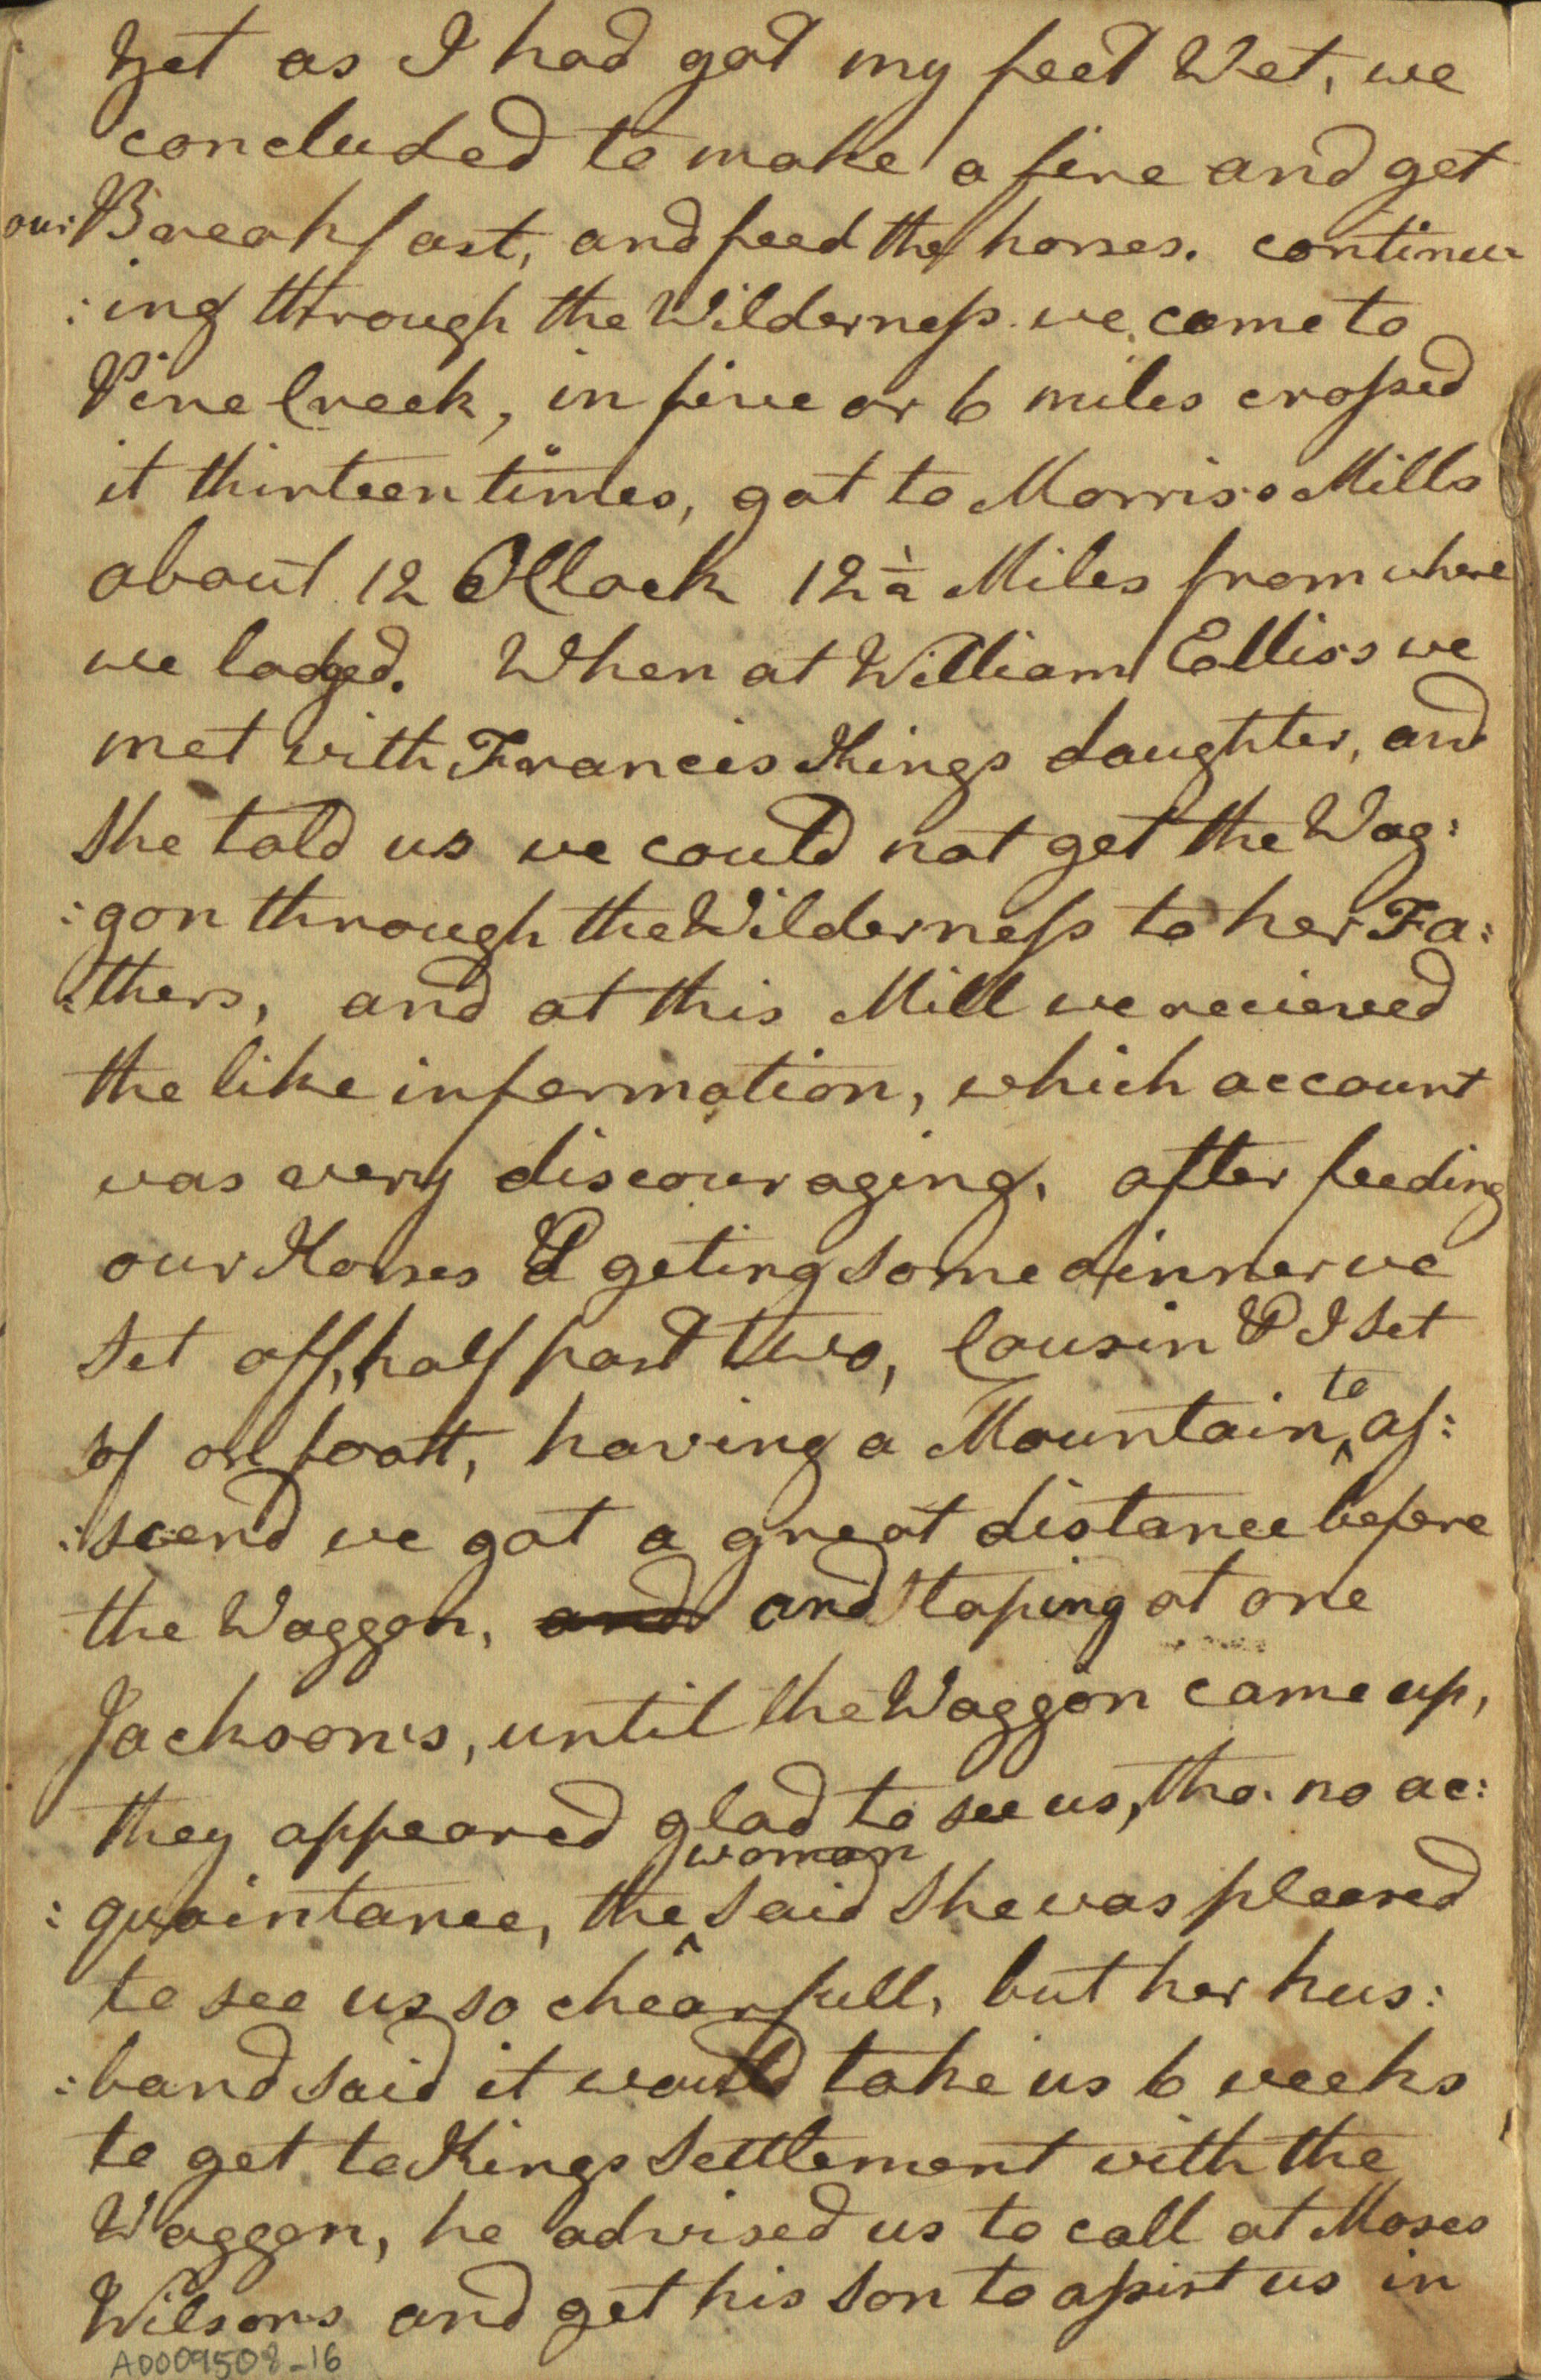 Yet as I had got my feet Wet, we
concluded to make a fire and get
our Breakfast, and feed the horses. continu
:ing through the Wilderness we came to
Pine Creek, in five or 6 miles crossed
it thirteen times, got to Morris's Mills
about 12 OClock 12½ Miles from where
we lodged. When at William Ellis's we
met with Francis Kings daughter, and
She told us we could not get the Wag:
:gon through the Wilderness to her Fa:
:thers, and at this Mill we recieved
the like information, which account
was very discouraging, after feeding
our Horses & geting some dinner we
Set off, half past two, Cousin & I Set
of on foott, having a Mountain to as:
:scend we got a great distance before
the Waggon, and and Stoping at one
Jacksons, until the Waggon came up,
they appeared glad to see us, tho. no ac:
:quaintance, the woman Said She was pleased
to see us so chearfull, but her hus:
:band Said it would take us 6 weeks
to get to Kings Settlement with the
Waggon, he advised us to call at Moses
Wilsons and get his Son to assist us in
A0009508-16